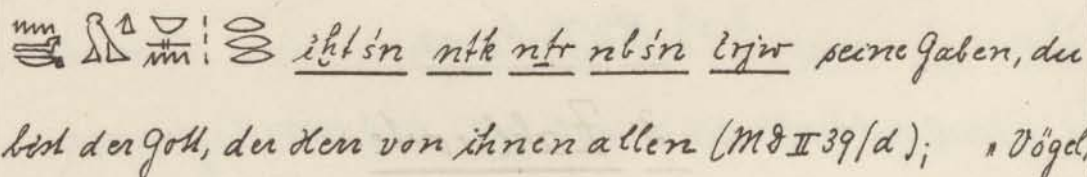 iḫtśn ntk nṯr nbśn irjw seine Gaben, du
bist der Gott, der Herr von ihnen allen (MD II 39/d); „Vögel,